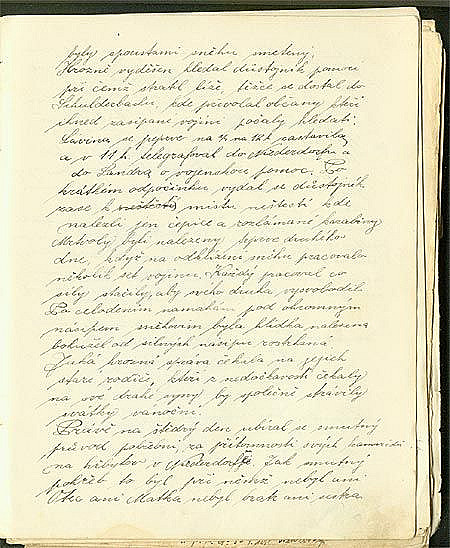 byly spoustami sněhu smeteny.
Hrozně vyděšen hledal důstojník pomoc
při čemž stratil lyže, těžce se dostal do
Schulderbachu, kde přivolal občany kteří
ihned zasypané vojíny počaly hledati.
Lavina se teprve na zastavila
a v 11 h. telegrafoval do Niederdorfu a
do Landra o vojenskou pomoc. Po
krátkém odpočinku vydal se důstojník
zase k neštěstí místu neštěstí kde
nalezli jen čepice a rozlámané karabiny
Mrtvoly byli nalezeny teprve druhého
dne, když na odklizení sněhu pracovalo
několik set vojínů. Každý pracoval co
síly stačily, aby svého druha vysvobodil.
Po celodením namáhání pod ohromným
násipem sněhovým byla hlídka nalezena
bohužel od silných násipů rozdrcena.
Jaká hrozná zpráva čekala na jejich
staré rodiče, kteří z nedočkavostí čekaly
na své drahé syny, by společně strávily
svátky vánoční.
Právě na štědrý den ubíral se smutný
průvod pohřební, za přítomnosti svých kamarádů
na hřbitov v Niederdorfě. Jak smutný
pohřeb to byl při němž nebyl ani
Otec ani Matka nebyl bratr ani sestra